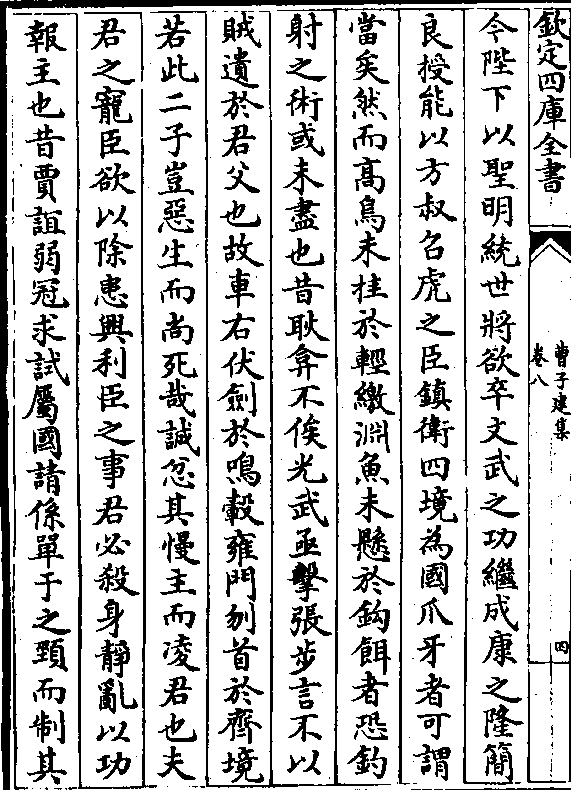 欽定四庫全書
曹子建集
卷八
四
令陛下以聖明統世將欲卒文武之功繼成康之隆簡
良授能以方叔召虎之臣鎮衛四境為國爪牙者可謂
當矣然而高鳥未挂於輕繳淵魚未懸於鈎餌者恐釣
射之術或未盡也昔耿弇不俟光武亟擊張步言不以
賊遺於君父也故車右伏劍於鳴轂雍門刎首於齊境
若此二子豈惡生而尚死哉誠忿其慢主而凌君也夫
君之寵臣欲以除患興利臣之事君必殺身靜亂以功
報主也昔賈誼弱冠求試屬國請係單于之頸而制其